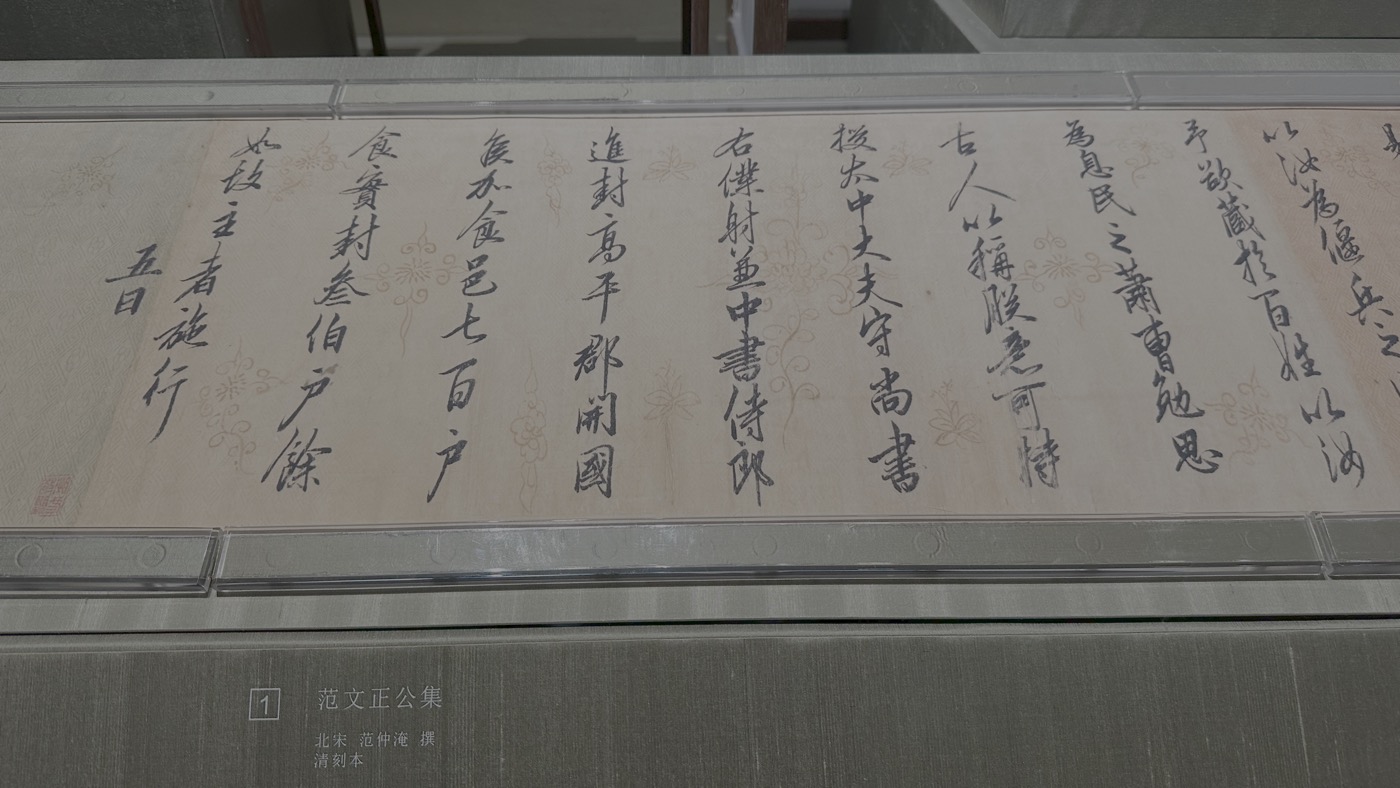 以汝為偃兵之
予欲藏於百姓以汝
為息民之蕭曹勉思
古人以稱朕意可特
授太中大夫守尚書
右僕射兼中書侍郎
進封高平郡開國
侯加食邑七百戶
食實封叄伯戶餘
如故主者施行
五日
1 范文正公集
北宋 范仲淹 撰
清刻本